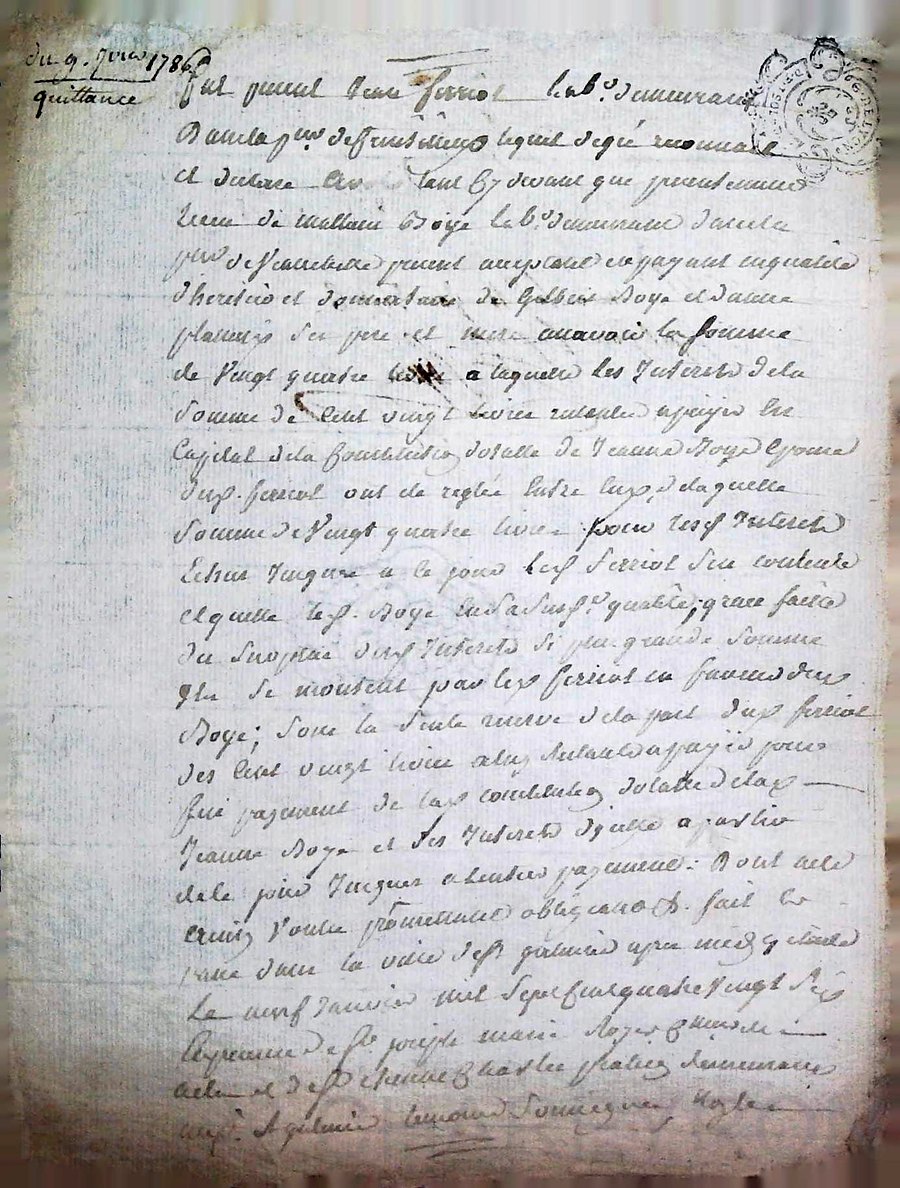 du 9. Janvier 1786
quittance
fut present Jean ferriol lab.r demeurant
Dans la par.sse de lequel de gré reconnait
et declare avoir tant cy devant que presentement
receu de Mathieu Boye lab.r demeurant dans la
par.sse de present acceptant et payant en qualité
d'heritier et donnataire de Gilbert Boye et d'anne
ses pere et mere a savoir la somme
de vingt quatre livres a laquelle les Interets de la
somme de Cent vingt livres restante a payer du
Capital de la Constitution dotalle de Jeanne Boye Epouse
dud. ferriol ont été reglés Entre Eux, de laquelle
somme de Vingt quatre livres pour lesd. Interets
Echus Jusques a ce jour led. ferriol s'en contente
et quitte led. Boye En sa susd. qualité, grace faite
du surplus desd. Interets si plus grande somme
se montent par led. ferriol en faveur dud.
Boye; sous la seule reserve de la part dud. ferriol
des Cent vingt livres a luy restantes a payer pour
fin payement de lad. constitution dotalle de lad.
Jeanne Boye et des Interets d'icelle a partir
de ce jour Jusques a l'entier payement: Dont acte
ainsy Voulu promettant obligeant &. fait et
passé dans la ville de St galmier apres midy Etude
Le neuf Janvier mil sept cent quatre Vingt Six
En presence de Sr. joseph marie
et de Sr. Etienne praticien demeurant
aud. St galmier temoins soussignes